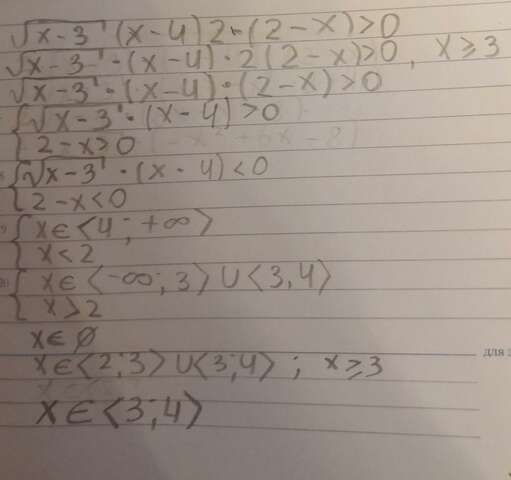 √x-3 (x-4) 2·(2-x)>0
√x-3 · (x-4) · 2(2-x)>0, x≥3
√x-3 · (x-4) · (2-x)>0
{ √x-3 · (x-4) >0
2-x>0
{ √x-3 · (x-4) <0
2-x<0
{ x∈⟨4;+∞⟩
x<2
{ x∈⟨-∞;3⟩∪⟨3,4⟩
x>2
x∈∅
x∈⟨2;3⟩∪⟨3;4⟩ ; x≥3
для
x∈⟨3;4⟩